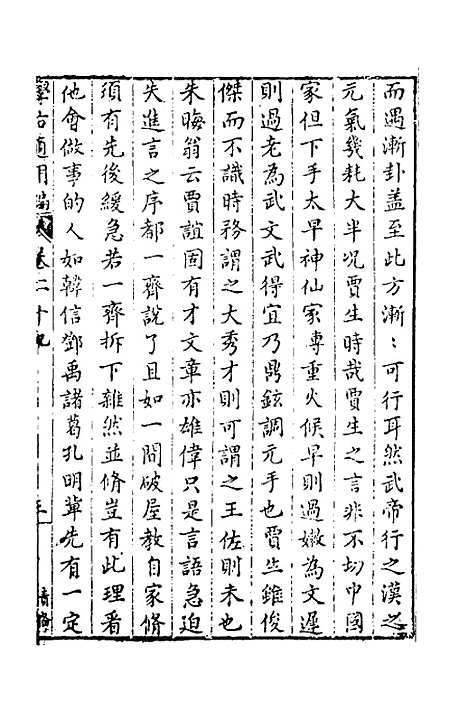 而遇漸卦蓋至此方漸〻可行耳然武帝行之漢之
元氣幾耗大半况賈生時哉賈生之言非不切中國
家但下手太早神仙家專重火候早則過嫩為文遲
則過老為武文武得宜乃鼎鉉調元手也賈生雖俊
傑而不識時務謂之大秀才則可謂之王佐則未也
朱晦翁云賈誼固有才文章亦雄偉只是言語急迫
失進言之序都一齊說了且如一間破屋教自家脩
須有先後緩急若一齊拆下雜然並脩豈有此理看
他會做事的人如韓信鄧禹諸葛孔明軰先有一定
學古適用編 卷二十九